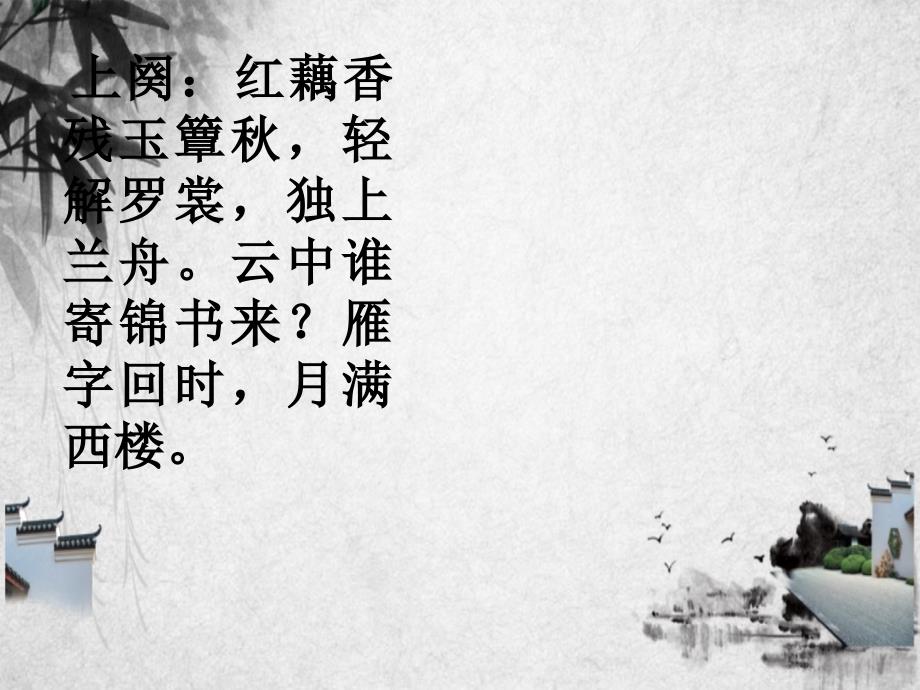 上阕：红藕香
残玉簟秋，轻
解罗裳，独上
兰舟。云中谁
寄锦书来？雁
字回时，月满
西楼。